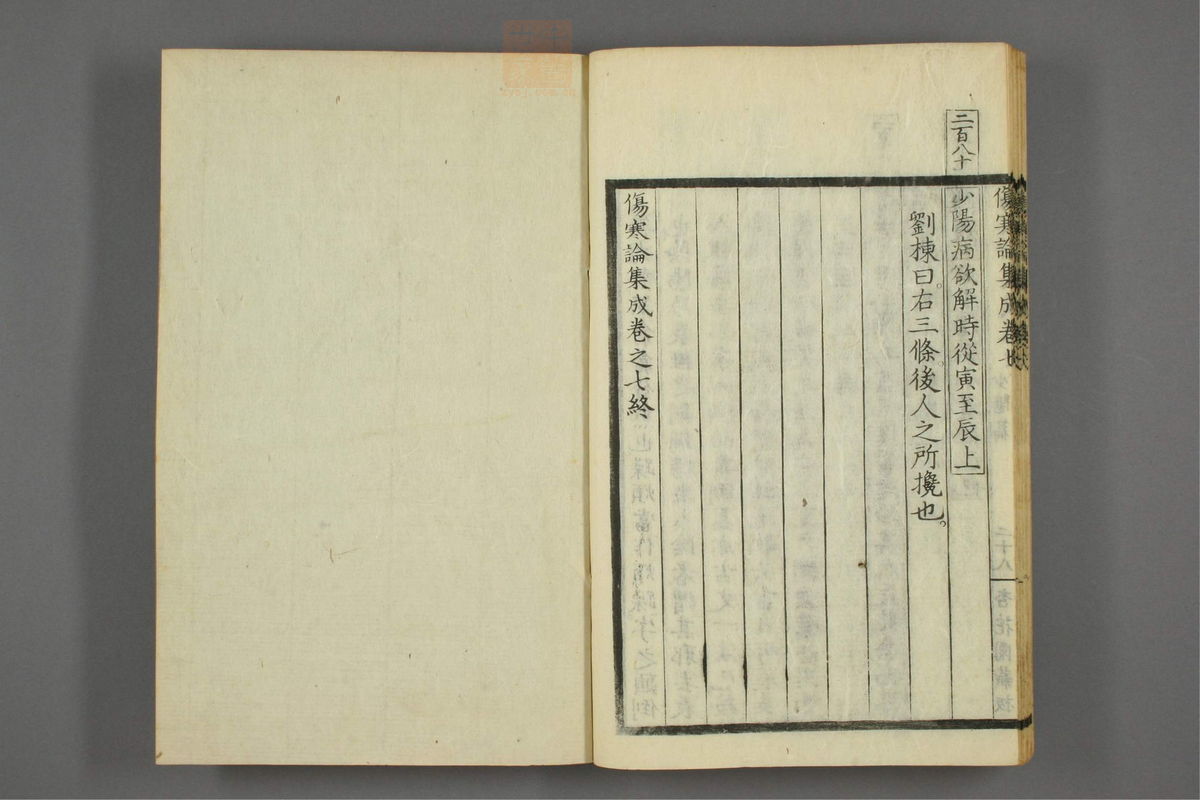 傷寒論集成卷七
三百八十
少陽病欲解時從寅至辰上
劉棟曰。右三條。後人之所攙也。
傷寒論集成卷之七終